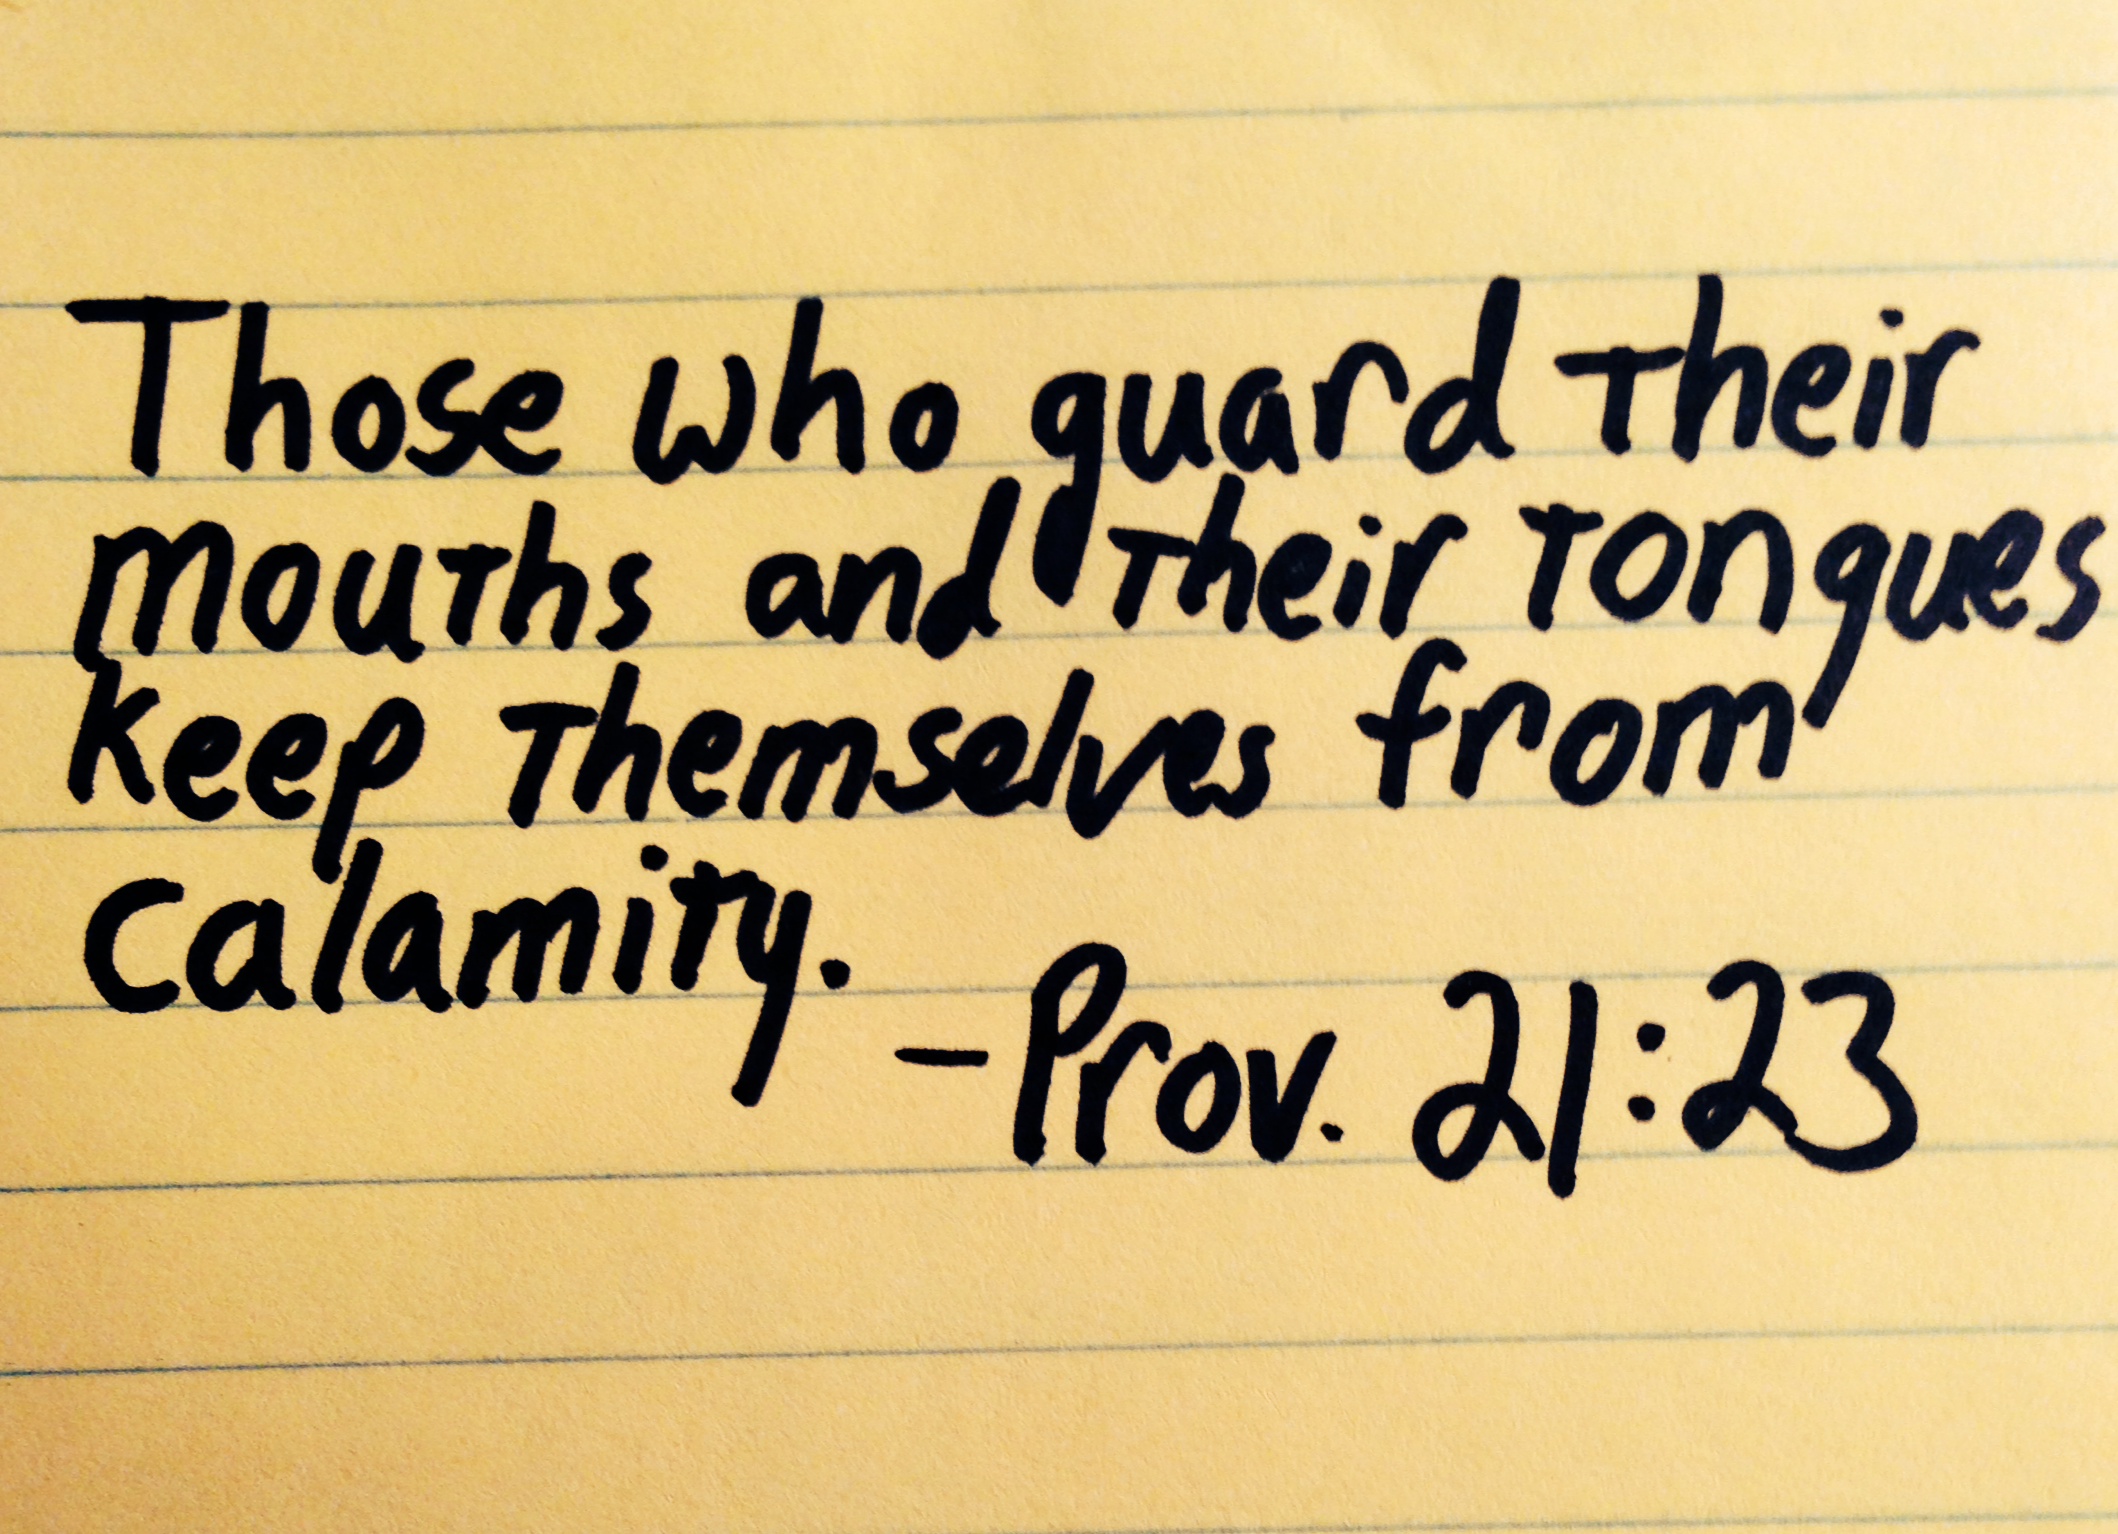 Those who guard their
mouths and their tongues
keep themselves from
calamity.
-Prov. 21:23